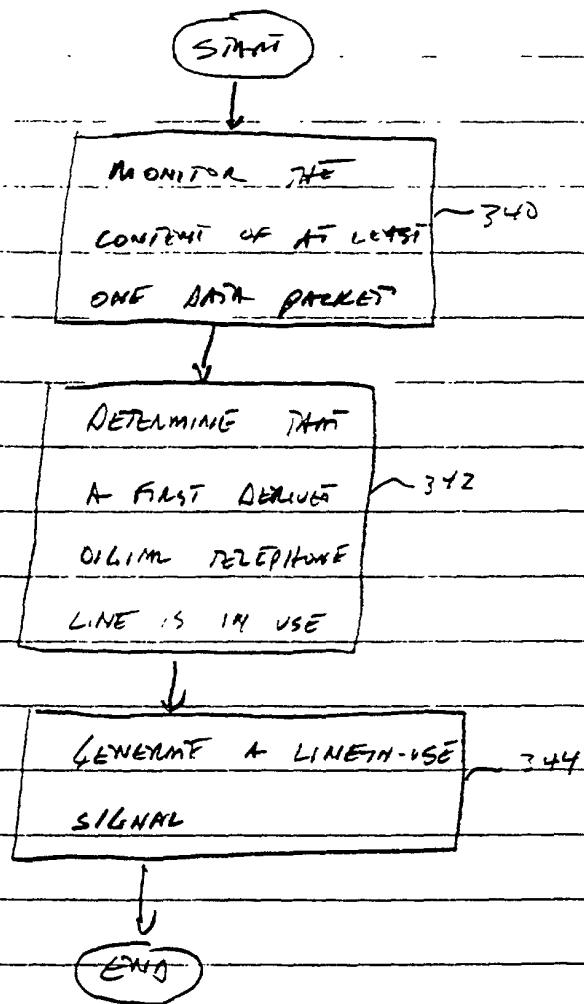 START
MONITOR THE
CONTENT OF AT LEAST
ONE DATA PACKET
340
DETERMINE THAT
A FIRST DERIVED
DIGITAL TELEPHONE
LINE IS IN USE
342
GENERATE A LINE-IN-USE
SIGNAL
344
END